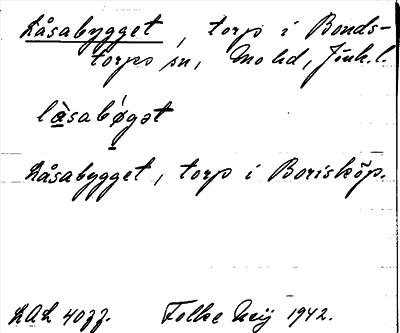 Låsabygget, torp i Bonds-
torps sn, Mo hd, Jönk. l.
làsabǿgət
Låsabygget, torp i Borisköp.
LAL 4077. Folke Neij 1942.